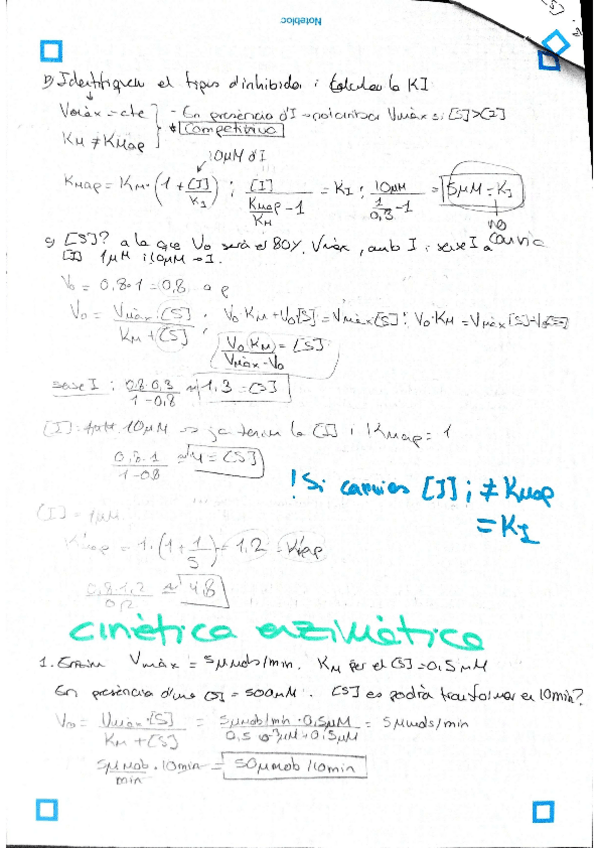 Notebloc
[S]
b) Identifiqueu el tipus d'inhibidor i calculeu la KI
Vmàx = cte - En presència d'I → pot arribar Vmàx si [S]>[I]
KM ≠ KMap * Competitiu
10μM d'I
KMap = KM·(1 + [I]/KI) ; [I]/(KMap/KM - 1) = KI ; 10μM/(1/0,3 - 1) = 5μM = KI
no canvia
c) [S]? a la que Vo serà el 80% Vmàx, amb I i sense I a
[I] 1μM i 10μM → I.
Vo = 0,8·1 = 0,8
Vo = Vmàx·[S]/(KM + [S]) ; Vo·KM + Vo[S] = Vmàx[S] ; Vo·KM = Vmàx[S] - Vo[S]
Vo·KM/(Vmàx - Vo) = [S]
sense I ; 0,8·0,3/(1 - 0,8) ≈ 1,3 = [S]
[I] = 10μM → ja tenim la [I] i KMap = 1
0,8·1/(1-0,8) ≈ 4 = [S]
! Si canvies [I] ; ≠ KMap
= KI
[I] = 1μM
KMap = 1·(1 + 1/5) = 1,2 = KMap
0,8·1,2/0,2 ≈ 4,8
cinètica enzimàtica
1. Enzim Vmàx = 5μmols/min. KM per el [S] = 0,5 mM
En presència d'una [S] = 500mM. [S] es podrà transformar en 10min?
Vo = Vmàx·[S]/(KM + [S]) = 5μmols/min·0,5μM/(0,5·10⁻³μM + 0,5μM) = 5μmols/min
5μmols/min · 10min = 50μmols/10min